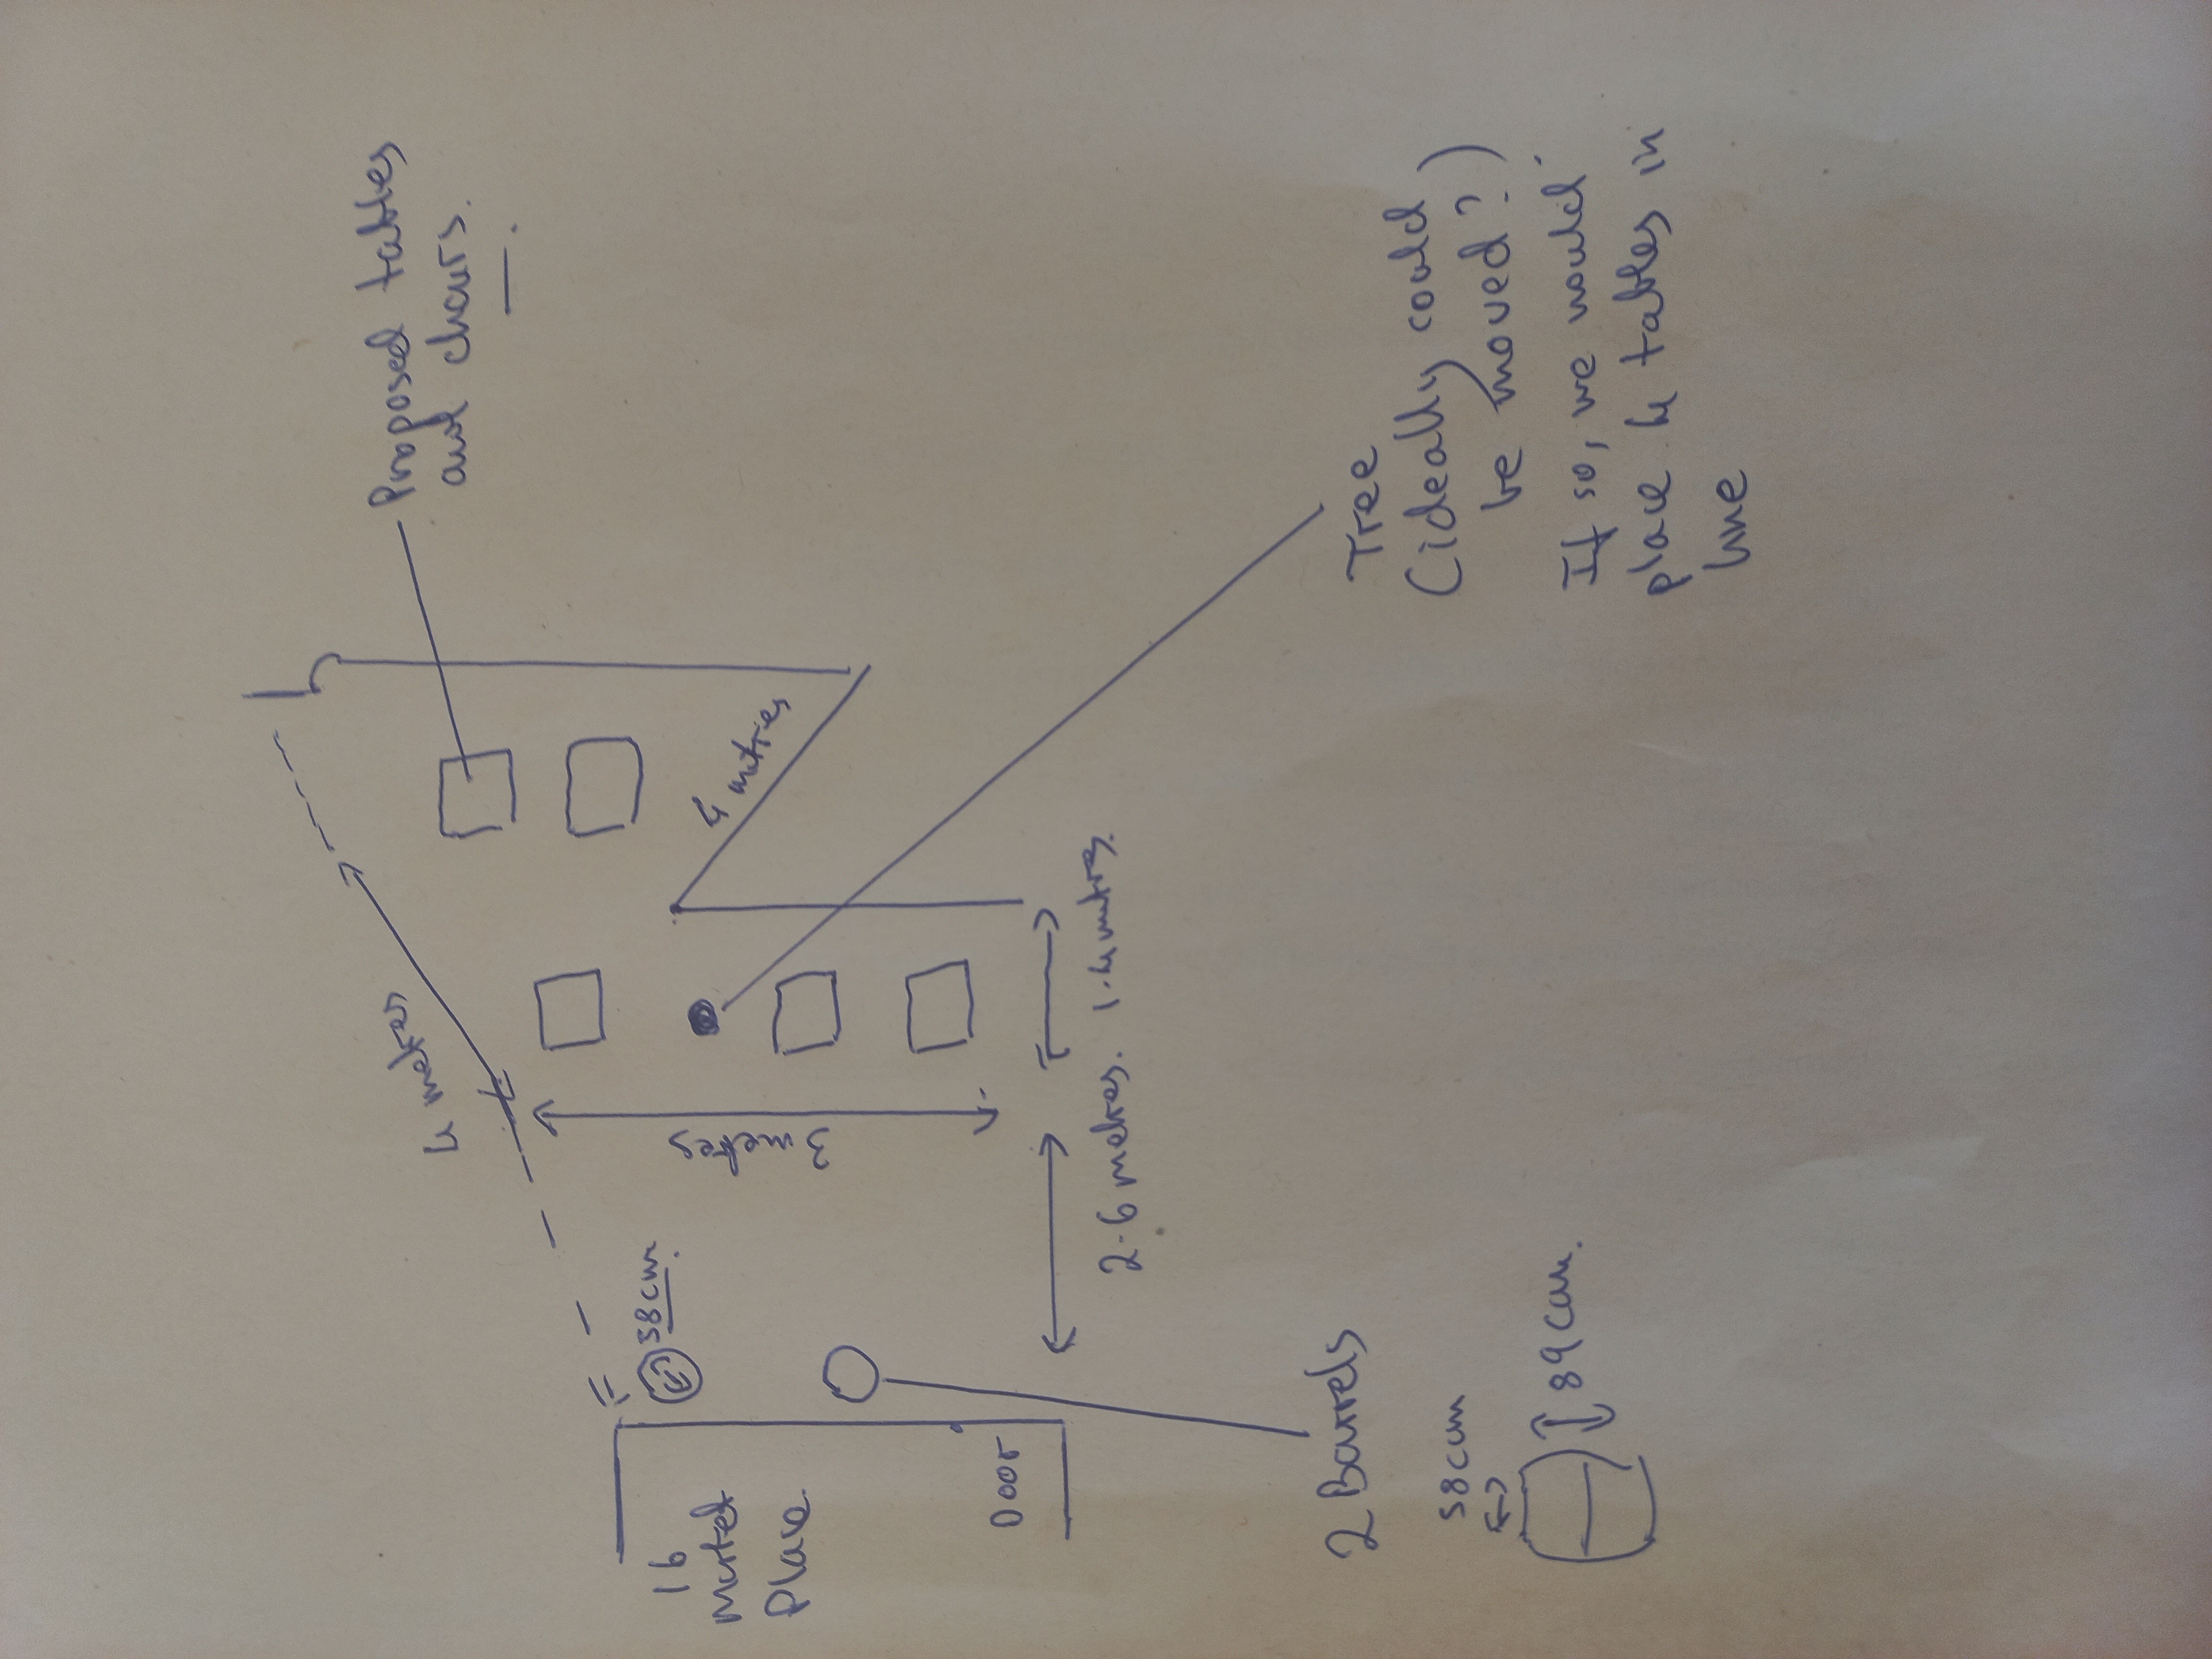 Proposed tables
and chairs.
4 metres
4 metres
3 metres
1.4 metres.
2.6 metres.
58cm.
16
Market
Place
Door
Tree
(ideally could
be moved?)
If so, we would
place 4 tables in
line
2 Barrels
58cm
89cm.